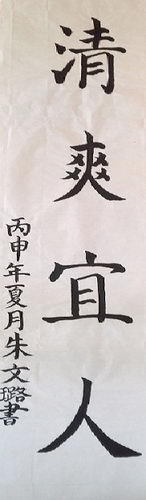 清爽宜人
丙申年夏月朱文璐書